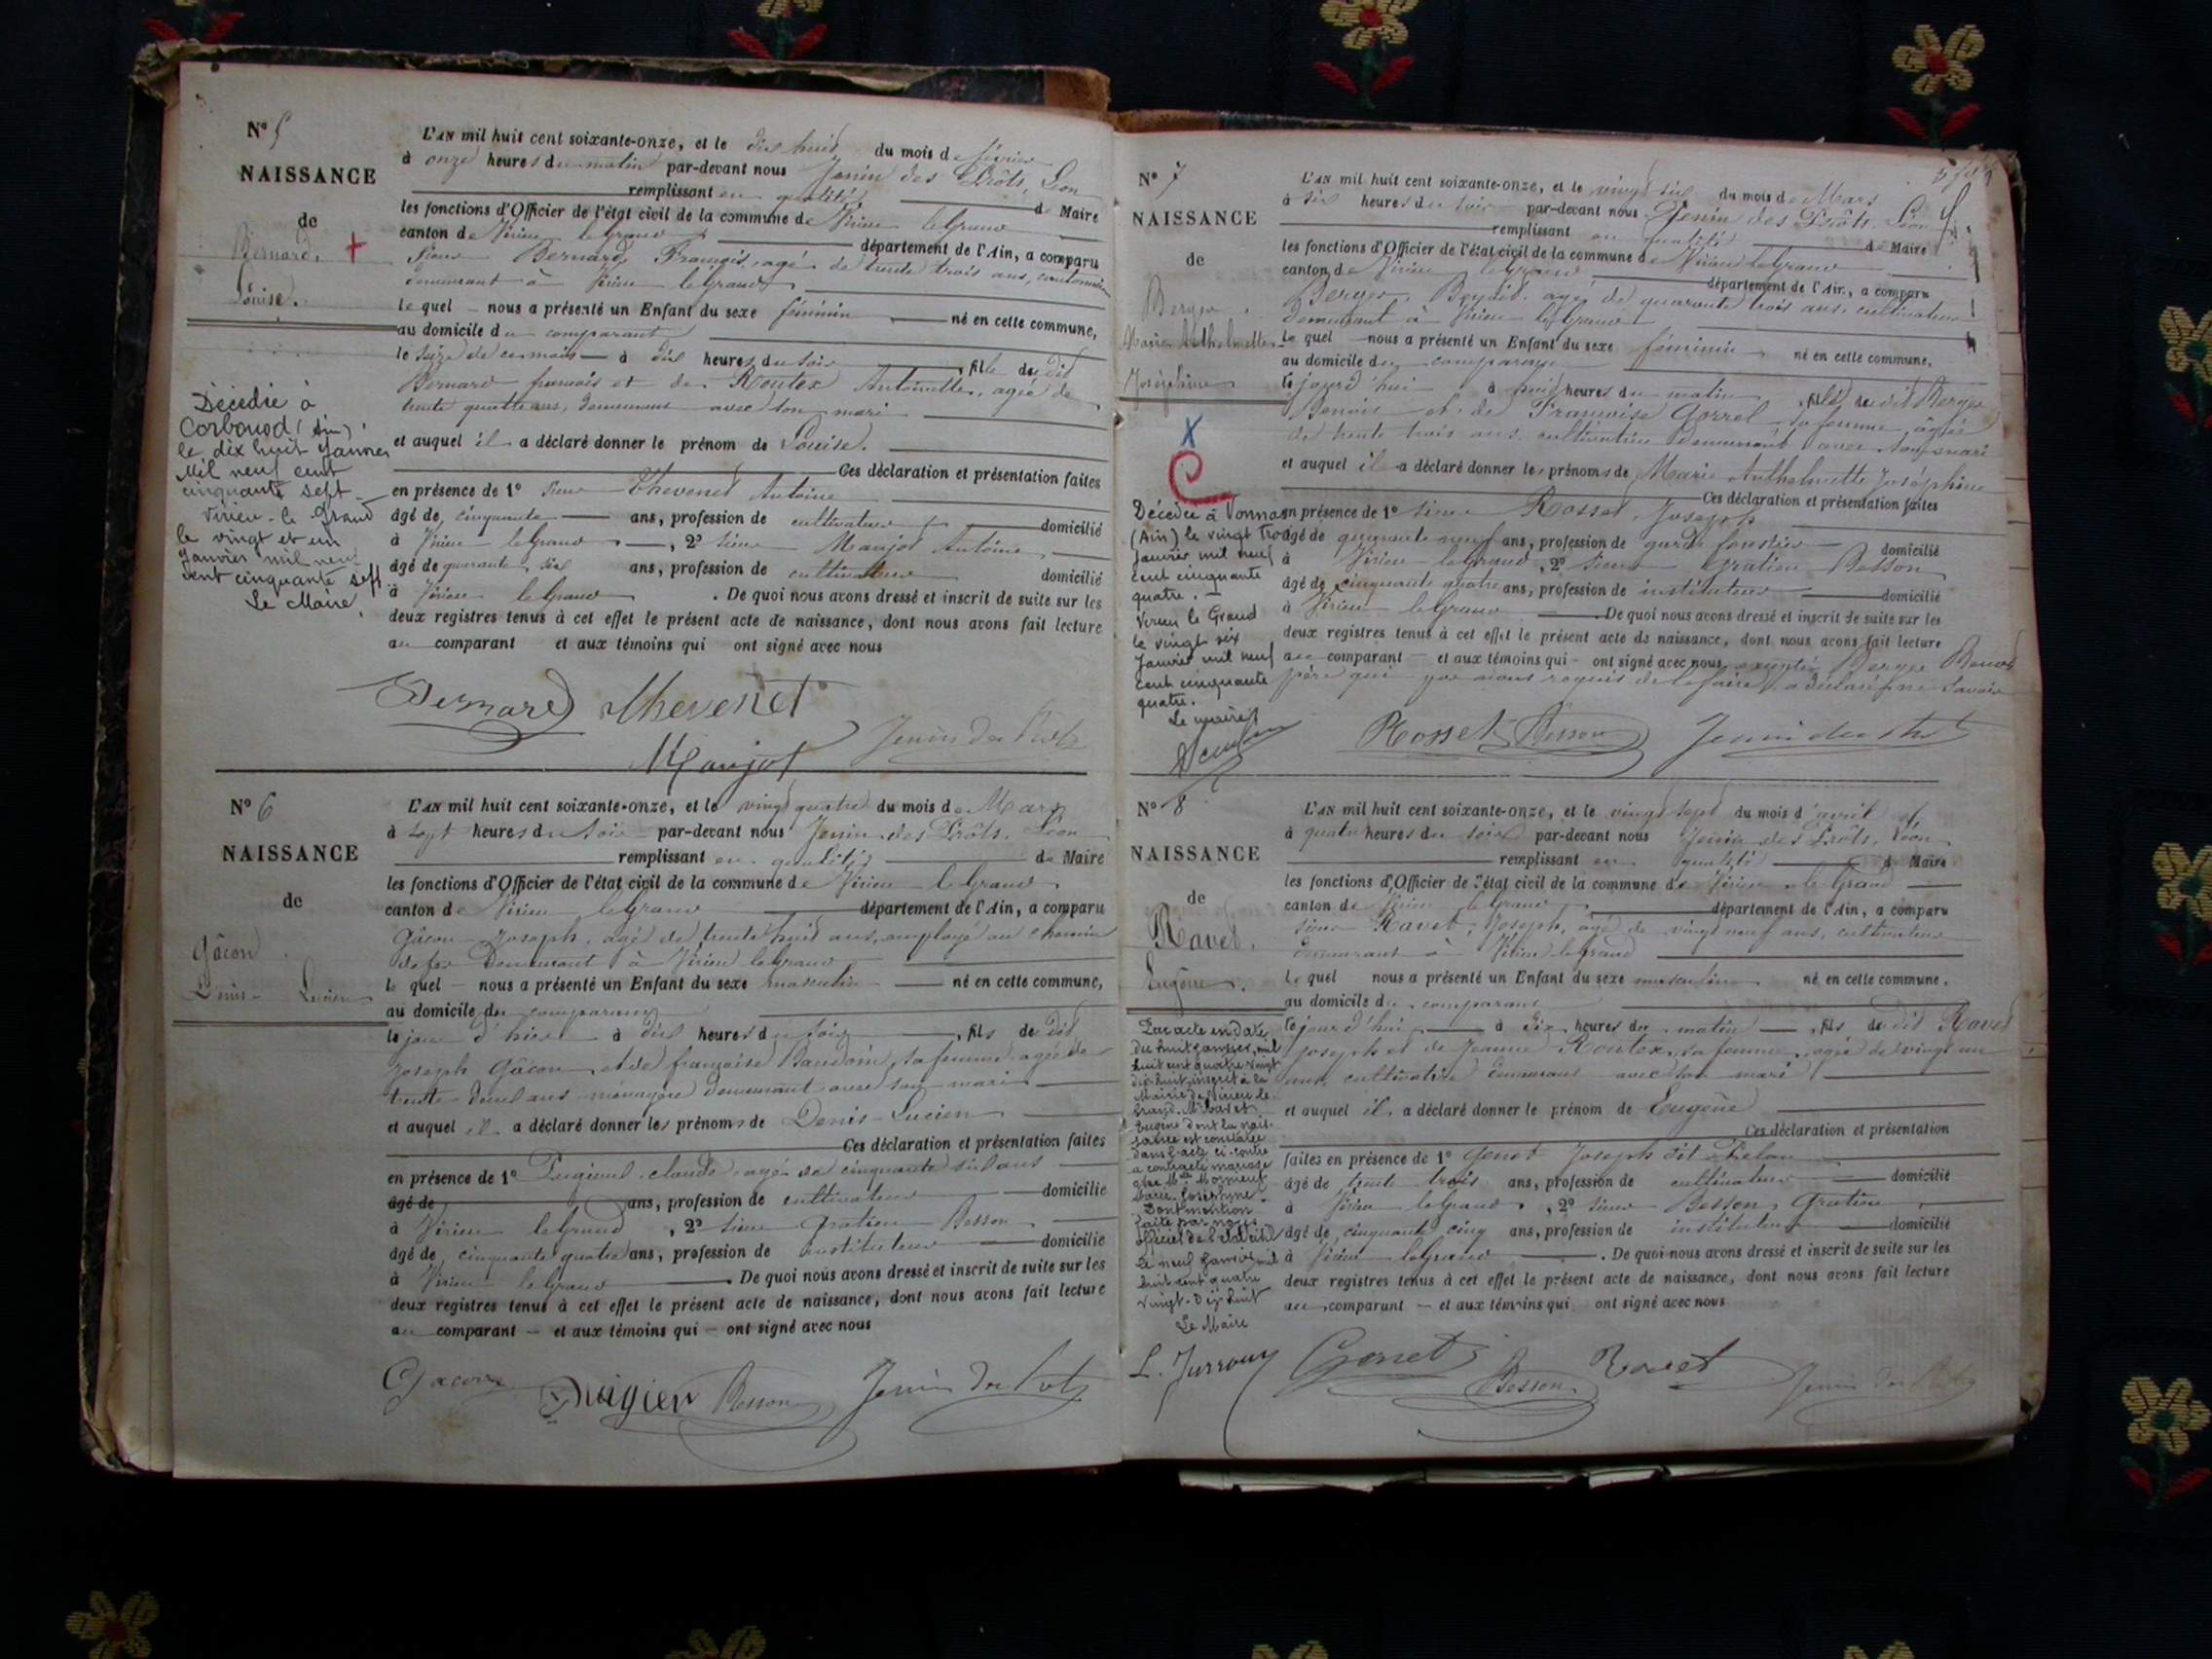 N° 5
NAISSANCE
de
Bernard
Louise.
Décédée à
Corbonod (Ain)
le dix huit Janvier
Mil neuf cent
cinquante sept
Virieu-le-Grand
le vingt et un
Janvier mil neuf
cent cinquante sept
Le Maire,
L'AN mil huit cent soixante-onze, et le dix huit du mois de février
à onze heures du matin par-devant nous Jenin des Prôts, Léon
remplissant en qualité de Maire
les fonctions d'Officier de l'état civil de la commune de Virieu le Grand
canton de Virieu le Grand département de l'Ain, a comparu
sieur Bernard, François, agé de trente trois ans, cantonnier
demeurant à Virieu le Grand
lequel nous a présenté un Enfant du sexe féminin né en cette commune,
au domicile du comparant
le seize de ce mois à dix heures du soir, fille du dit
Bernard françois et de Routex Antoinette, agée de
trente quatre ans, demeurant avec son mari
et auquel il a déclaré donner le prénom de Louise.
Ces déclaration et présentation faites
en présence de 1° sieur Thevenet Antoine
âgé de cinquante ans, profession de cultivateur domicilié
à Virieu le Grand, 2° sieur Maujot Antoine
âgé de quarante six ans, profession de cultivateur domicilié
à Virieu le Grand. De quoi nous avons dressé et inscrit de suite sur les
deux registres tenus à cet effet le présent acte de naissance, dont nous avons fait lecture
au comparant et aux témoins qui ont signé avec nous
Bernard Thevenet
Maujot Jenin des Prôts
N° 6
NAISSANCE
de
Gâcon
Denis-Lucien
L'AN mil huit cent soixante-onze, et le vingt quatre du mois de Mars
à sept heures du soir par-devant nous Jenin des Prôts, Léon
remplissant en qualité de Maire
les fonctions d'Officier de l'état civil de la commune de Virieu le Grand
canton de Virieu le Grand département de l'Ain, a comparu
Gâcon Joseph, agé de trente huit ans, employé au chemin
de fer demeurant à Virieu le Grand
lequel nous a présenté un Enfant du sexe masculin né en cette commune,
au domicile du comparant
le jour d'hier à dix heures du soir, fils du dit
Joseph Gâcon et de françoise Baudoin, sa femme agée de
trente deux ans ménagère demeurant avec son mari
et auquel il a déclaré donner les prénoms de Denis-Lucien
Ces déclaration et présentation faites
en présence de 1° claude agé de cinquante six ans
âgé de ans, profession de cultivateur domicilié
à Virieu le Grand, 2° sieur Gratien Besson
âgé de cinquante quatre ans, profession de instituteur domicilié
à Virieu le Grand. De quoi nous avons dressé et inscrit de suite sur les
deux registres tenus à cet effet le présent acte de naissance, dont nous avons fait lecture
au comparant et aux témoins qui ont signé avec nous
Gacon Besson Jenin des Prôts
N° 7
NAISSANCE
de
Berger
Marie Anthelmette
Joséphine
Décédée à Vonnas
(Ain) le vingt trois
Janvier mil neuf
cent cinquante
quatre.
Virieu le Grand
le vingt six
Janvier mil neuf
cent cinquante
quatre.
Le maire
L'AN mil huit cent soixante-onze, et le vingt six du mois de Mars
à six heures du soir par-devant nous Jenin des Prôts, Léon
remplissant en qualité de Maire
les fonctions d'Officier de l'état civil de la commune de Virieu le Grand
canton de Virieu le Grand département de l'Ain, a comparu
Berger, Benoit, agé de quarante trois ans, cultivateur
demeurant à Virieu le Grand
lequel nous a présenté un Enfant du sexe féminin né en cette commune,
au domicile du comparant
le jourd'hui à huit heures du matin, fille du dit Berger
Benoit et de Françoise Gorrel, sa femme, agée
de trente trois ans, cultivatrice demeurant avec son mari
et auquel il a déclaré donner les prénoms de Marie Anthelmette Joséphine
Ces déclaration et présentation faites
en présence de 1° sieur Rosset, Joseph
âgé de quarante neuf ans, profession de garde forestier domicilié
à Virieu le Grand, 2° sieur Gratien Besson
âgé de cinquante quatre ans, profession de instituteur domicilié
à Virieu le Grand. De quoi nous avons dressé et inscrit de suite sur les
deux registres tenus à cet effet le présent acte de naissance, dont nous avons fait lecture
au comparant et aux témoins qui ont signé avec nous, excepté Berger Benoit
père qui par nous requis de le faire, a déclaré ne savoir
Rosset Besson Jenin des Prôts
N° 8
NAISSANCE
de
Ravet.
Eugène.
Par acte en date
du huit janvier, mil
huit cent quatre vingt
dix huit, inscrit à la
Mairie de Virieu le
Grand, M. Ravet
Eugène dont la nais-
sance est constatée
dans l'acte ci-contre
a contracté mariage
avec Mlle
Marie Joséphine.
Dont mention
faite par nous
officier de l'état civil
Le neuf Janvier mil
huit cent quatre
vingt-dix huit
Le Maire
L. Jurron
L'AN mil huit cent soixante-onze, et le vingt sept du mois d'avril
à quatre heures du soir par-devant nous Jenin des Prôts, Léon
remplissant en qualité de Maire
les fonctions d'Officier de l'état civil de la commune de Virieu le Grand
canton de Virieu le Grand département de l'Ain, a comparu
sieur Ravet, Joseph, agé de vingt neuf ans, cultivateur
demeurant à Virieu le Grand
lequel nous a présenté un Enfant du sexe masculin né en cette commune,
au domicile du comparant
le jour d'hui à dix heures du matin, fils du dit Ravet
Joseph et de Jeanne Routex, sa femme, agée de vingt un
ans, cultivatrice demeurant avec son mari
et auquel il a déclaré donner le prénom de Eugène
Ces déclaration et présentation
faites en présence de 1° Genet Joseph dit
âgé de trente trois ans, profession de cultivateur domicilié
à Virieu le Grand, 2° sieur Besson Gratien
âgé de cinquante cinq ans, profession de instituteur domicilié
à Virieu le Grand. De quoi nous avons dressé et inscrit de suite sur les
deux registres tenus à cet effet le présent acte de naissance, dont nous avons fait lecture
au comparant et aux témoins qui ont signé avec nous
Genet Besson Ravet Jenin des Prôts